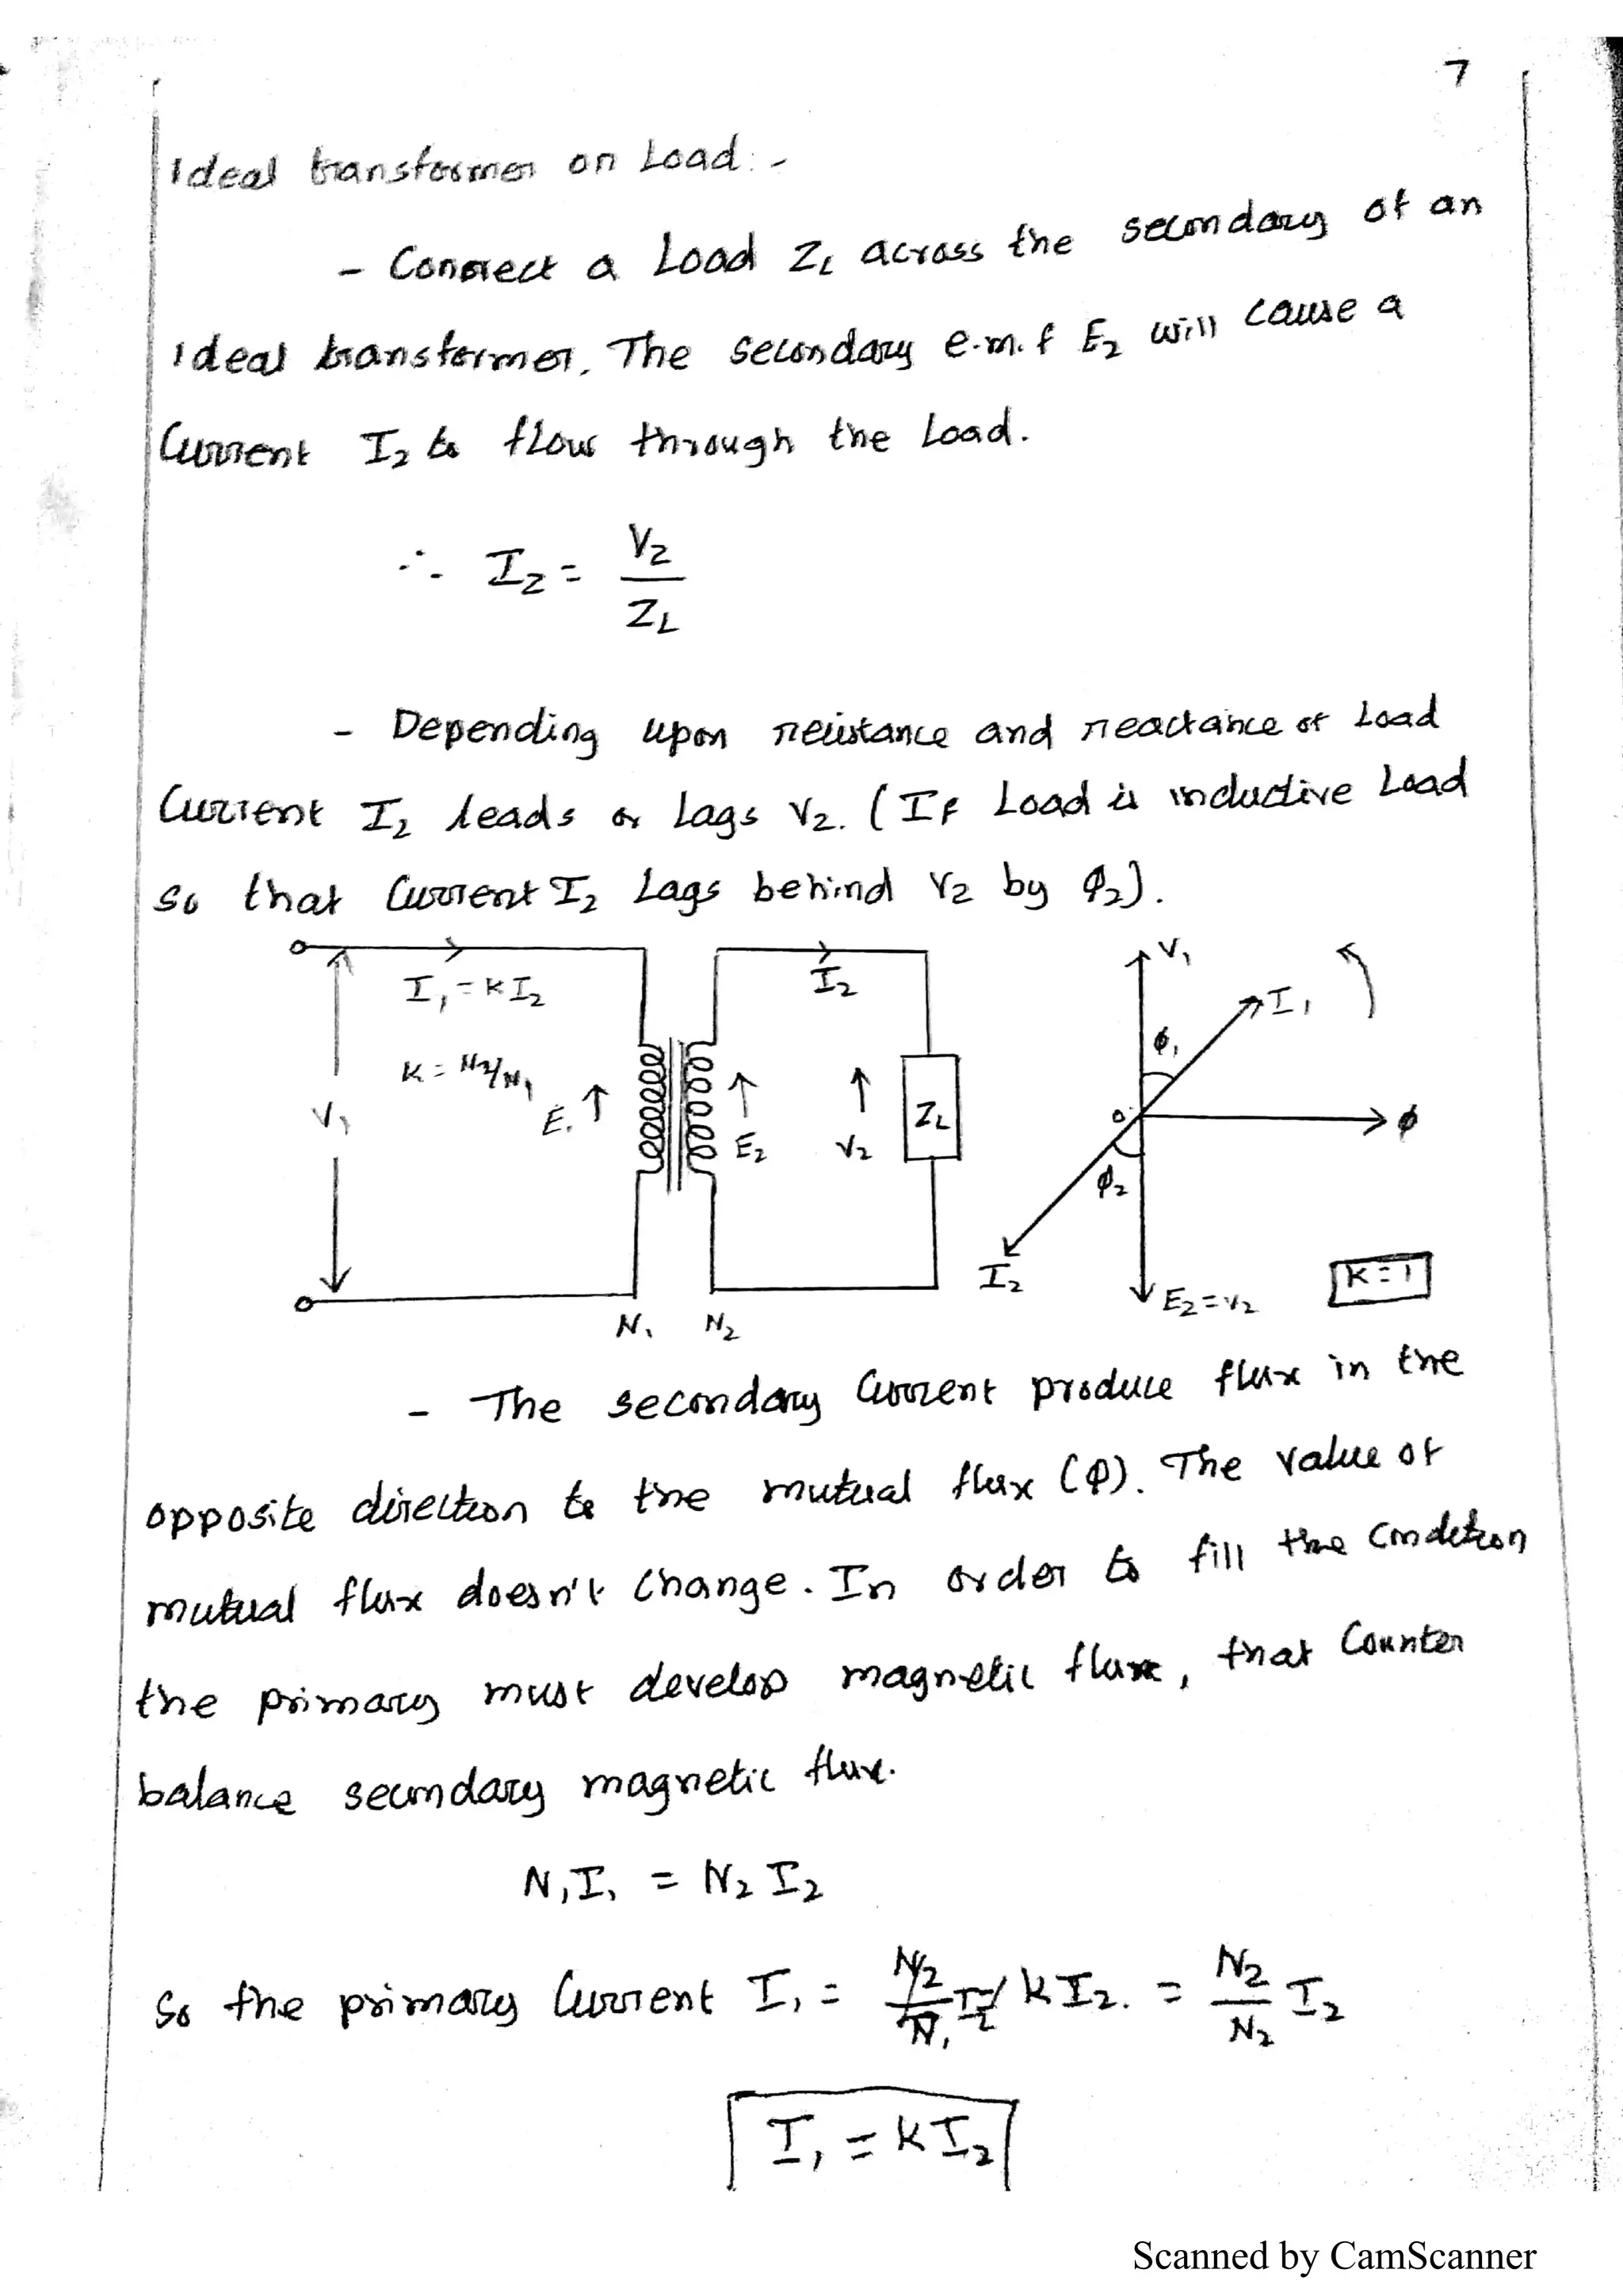 7
Ideal transformer on Load :-
- Connect a Load ZL across the secondary of an
Ideal transformer. The secondary e.m.f E2 will cause a
Current I2 to flow through the Load.
∴ I2 = V2/ZL
- Depending upon resistance and reactance of Load
Current I2 leads or lags V2. (If Load is inductive Load
so that Current I2 Lags behind V2 by φ2).
I1 = KI2
K = N2/N1
V1
E1
E2
I2
V2
ZL
N1 N2
V1
I1
φ1
o
φ
φ2
I2
E2 = V2
K = 1
- The secondary Current produce flux in the
opposite direction to the mutual flux (φ). The value of
mutual flux doesn't change. In order to fill the Condition
the primary must develop magnetic flux, that Counter
balance secondary magnetic flux.
N1I1 = N2I2
So the primary Current I1 = KI2. = N2/N2 I2
I1 = KI2
Scanned by CamScanner